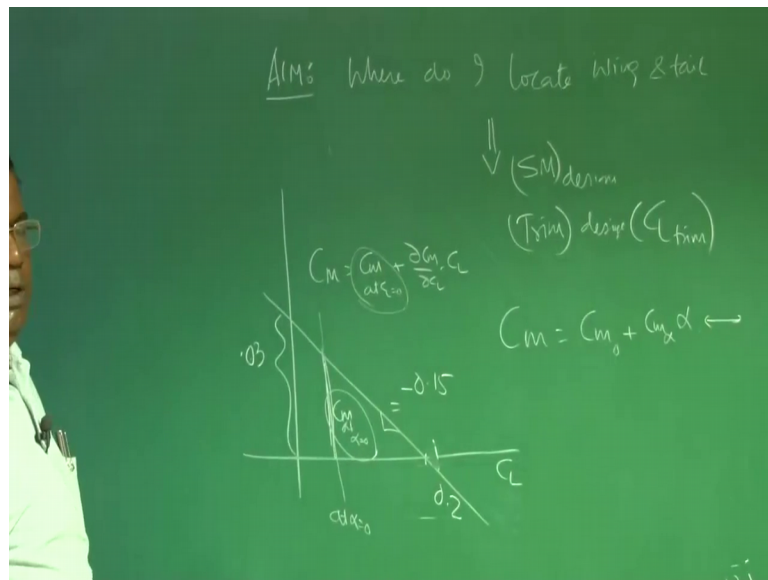 AIM: Where do I locate Wing & tail
(SM) design
(Trim) design (CL trim)
Cm = Cm at CL=0 + ∂Cm/∂CL · CL
Cm = Cm0 + Cmα α ↔
.03
= -0.15
Cm at α=0
CL
0.2
at α=0